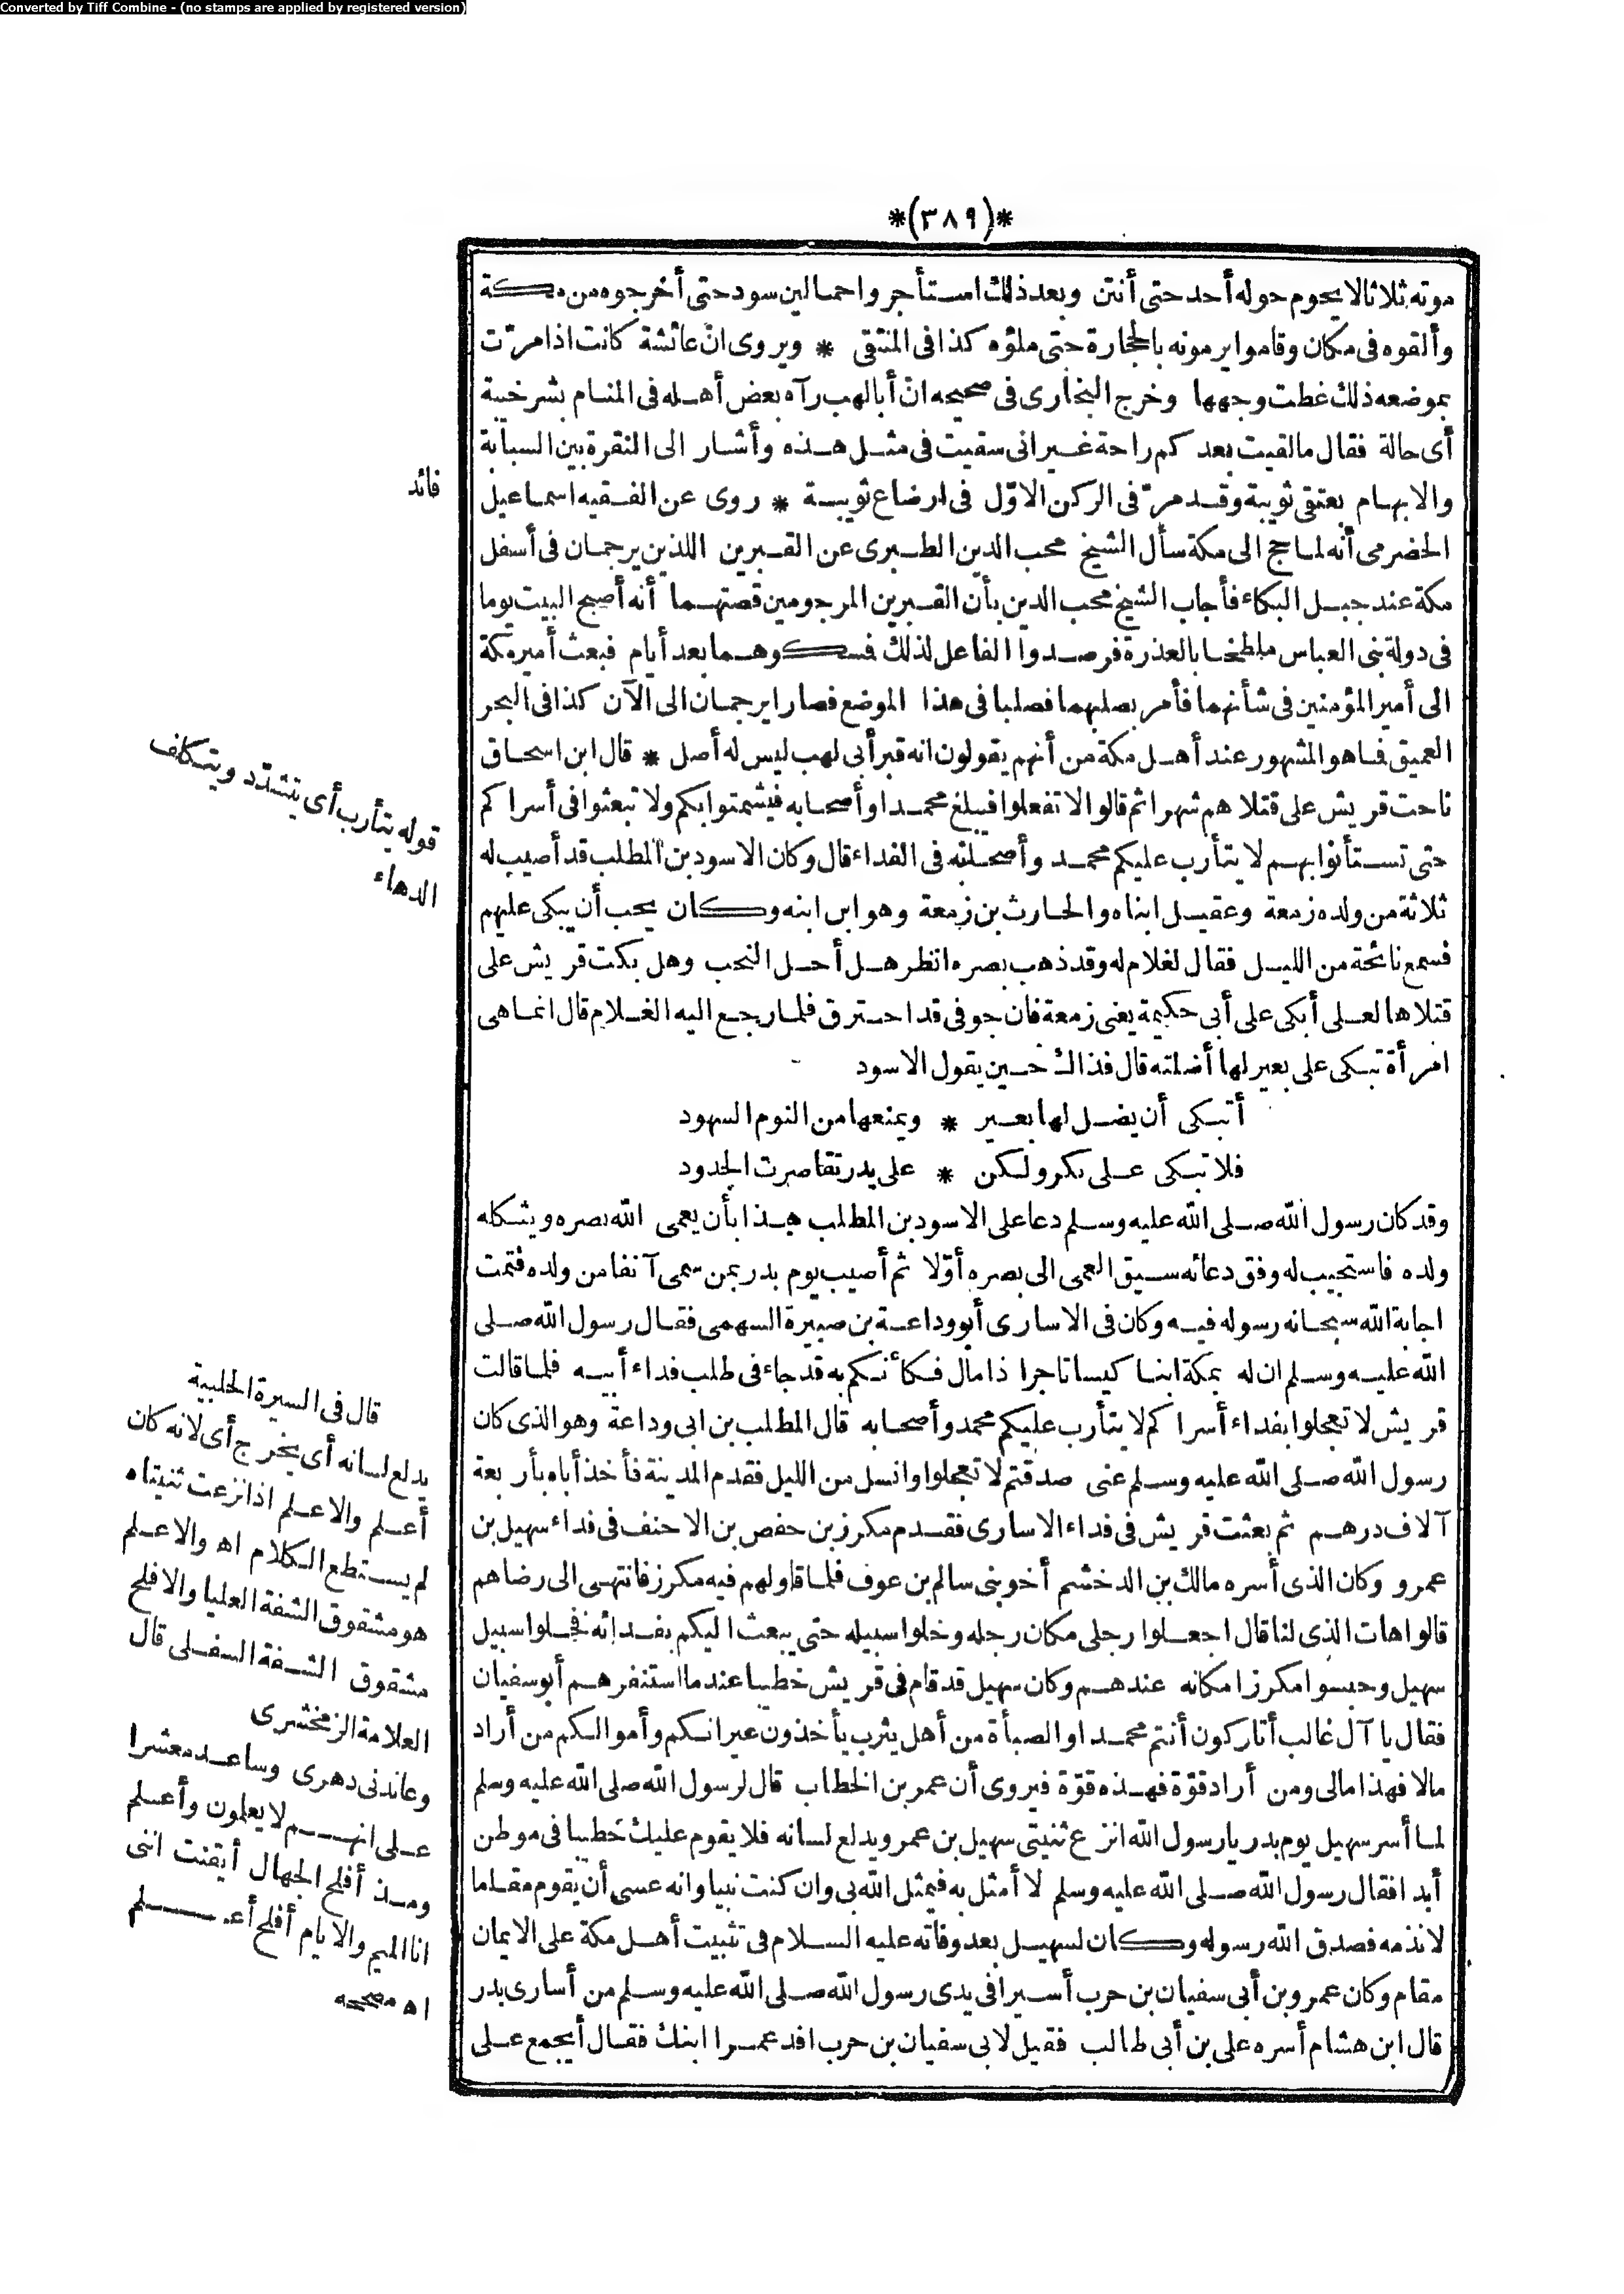 Converted by Tiff Combine - (no stamps are applied by registered version)
*(٣٨٩)*
موته ثلاثا لا يحوم حوله أحد حتى أنتن وبعد ذلك استأجروا حمالين سود حتى أخرجوه من مكة
وألقوه فى مكان وقاموا يرمونه بالحجارة حتى ملؤه كذا فى المنتقى * ويروى انّ عائشة كانت اذا مرّت
بموضعه ذلك غطت وجهها وخرج البخارى فى صحيحه انّ أبا لهب رآه بعض أهله فى المنام بشر خيبة
أى حالة فقال ما لقيت بعدكم راحة غير انى سقيت فى مثل هذه وأشار الى النقرة بين السبابة
والابهام بعتقى ثويبة وقد مرّ فى الركن الاوّل فى ارضاع ثويبة * روى عن الفقيه اسماعيل
الحضرمى أنه لما حج الى مكة سأل الشيخ محب الدين الطبرى عن القبرين اللذين يرجمان فى أسفل
مكة عند جبل البكاء فأجاب الشيخ محب الدين بأن القبرين المرجومين قصتهما أنه أصبح البيت يوما
فى دولة بنى العباس ملطخا بالعذرة فرصدوا الفاعل لذلك فسكوهما بعد أيام فبعث أمير مكة
الى أمير المؤمنين فى شأنهما فأمر بصلبهما فصلبا فى هذا الموضع فصارا يرجمان الى الآن كذا فى البحر
العميق فما هو المشهور عند أهل مكة من أنهم يقولون انه قبر أبى لهب ليس له أصل * قال ابن اسحاق
ناحت قريش على قتلاهم شهرا ثم قالوا لا تفعلوا فيبلغ محمدا وأصحابه فيشمتوا بكم ولا تبعثوا فى أسراكم
حتى تستأنوا بهم لا يتأرب عليكم محمد وأصحابه فى الفداء قال وكان الاسود بن المطلب قد أصيب له
ثلاثة من ولده زمعة وعقيل ابناه والحارث بن زمعة وهو ابن ابنه وكان يحب أن يبكى عليهم
فسمع نائحة من الليل فقال لغلام له وقد ذهب بصره انظر هل أحل النحب وهل بكت قريش على
قتلاها لعلى أبكى على أبى حكيمة يعنى زمعة فان جوفى قد احترق فلما رجع اليه الغلام قال انما هى
امرأة تبكى على بعير لها أضلته قال فذاك حين يقول الاسود
أتبكى أن يضل لها بعير * ويمنعها من النوم السهود
فلا تبكى على بكر ولكن * على بدر تقاصرت الجدود
وقد كان رسول الله صلى الله عليه وسلم دعا على الاسود بن المطلب هذا بأن يعمى الله بصره ويثكله
ولده فاستجيب له وفق دعائه سبق العمى الى بصره أوّلا ثم أصيب يوم بدر بمن سمى آنفا من ولده فتمت
اجابة الله سبحانه رسوله فيه وكان فى الاسارى أبو وداعة بن صبيرة السهمى فقال رسول الله صلى
الله عليه وسلم ان له بمكة ابنا كيسا تاجرا ذا مال فكأنكم به قد جاء فى طلب فداء أبيه فلما قالت
قريش لا تعجلوا بفداء أسراكم لا يتأرب عليكم محمد وأصحابه قال المطلب بن ابى وداعة وهو الذى كان
رسول الله صلى الله عليه وسلم عنى صدقتم لا تعجلوا وانسل من الليل فقدم المدينة فأخذ أباه بأربعة
آلاف درهم ثم بعثت قريش فى فداء الاسارى فقدم مكرز بن حفص بن الاحنف فى فداء سهيل بن
عمرو وكان الذى أسره مالك بن الدخشم أخو بنى سالم بن عوف فلما قاولهم فيه مكرز فانتهى الى رضاهم
قالوا هات الذى لنا قال اجعلوا رجلى مكان رجله وخلوا سبيله حتى يبعث اليكم بفدائه فخلوا سبيل
سهيل وحبسوا مكرزا مكانه عندهم وكان سهيل قد قام فى قريش خطيبا عندما استنفرهم أبو سفيان
فقال يا آل غالب أتاركون أنتم محمدا والصبأة من أهل يثرب يأخذون عيرانكم وأموالكم من أراد
مالا فهذا مالى ومن أراد قوّة فهذه قوّة فيروى أن عمر بن الخطاب قال لرسول الله صلى الله عليه وسلم
لما أسر سهيل يوم بدر يا رسول الله انزع ثنيتى سهيل بن عمرو ويدلع لسانه فلا يقوم عليك خطيبا فى موطن
أبدا فقال رسول الله صلى الله عليه وسلم لا أمثل به فيمثل الله بى وان كنت نبيا وانه عسى أن يقوم مقاما
لا نذمه فصدق الله رسوله وكان لسهيل بعد وفاته عليه السلام فى تثبيت أهل مكة على الايمان
مقام وكان عمرو بن أبى سفيان بن حرب أسيرا فى يدى رسول الله صلى الله عليه وسلم من أسارى بدر
قال ابن هشام أسره على بن أبى طالب فقيل لابى سفيان بن حرب افد عمرا ابنك فقال أيجمع على
فائد
قوله يتأرب أى يتشدّد ويتكلف
الدهاء
قال فى السيرة الحلبية
يدلع لسانه أى يخرج أى لانه كان
أعلم والاعلم اذا نزعت ثنيتاه
لم يستطع الكلام اه والاعلم
هو مشقوق الشفة العليا والافلح
مشقوق الشفة السفلى قال
العلامة الزمخشرى
وعاندنى دهرى وساعد معشرا
على انهم لا يعلون وأعلم
ومذ أفلح الجهال أيقنت اننى
انا الميم والايام أفلح أعلم
اه مصححه